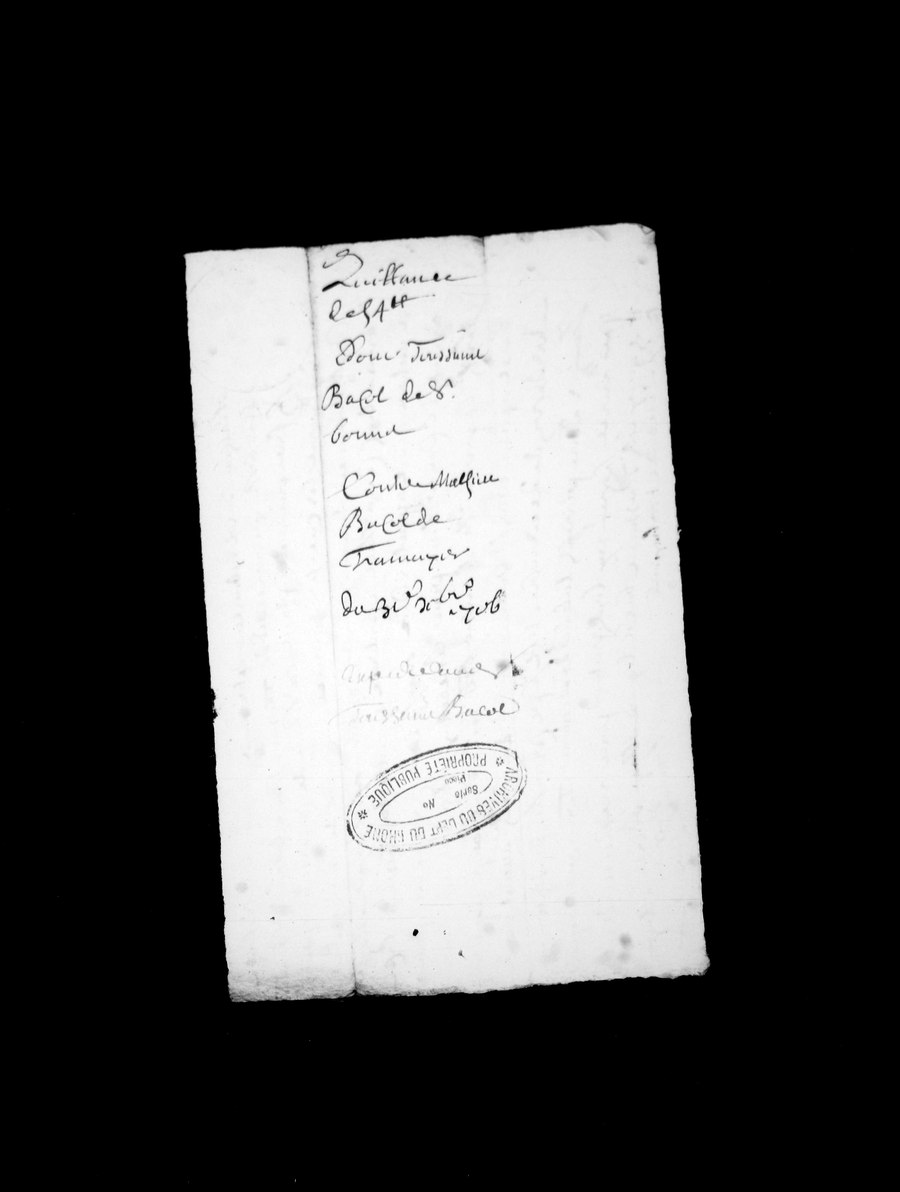 Quittance
de 54ᵗᵗ
Pour Toussaint
Bacol de Sᵗ
bonnet
Contre Mathieu
Bacol de
Tramayes
du 31ᵉ xbrᵉ 1706
Toussaint Bacol
ARCHIVES DU DEPT DU RHONE
* PROPRIÉTÉ PUBLIQUE *
Serie
No
Piece